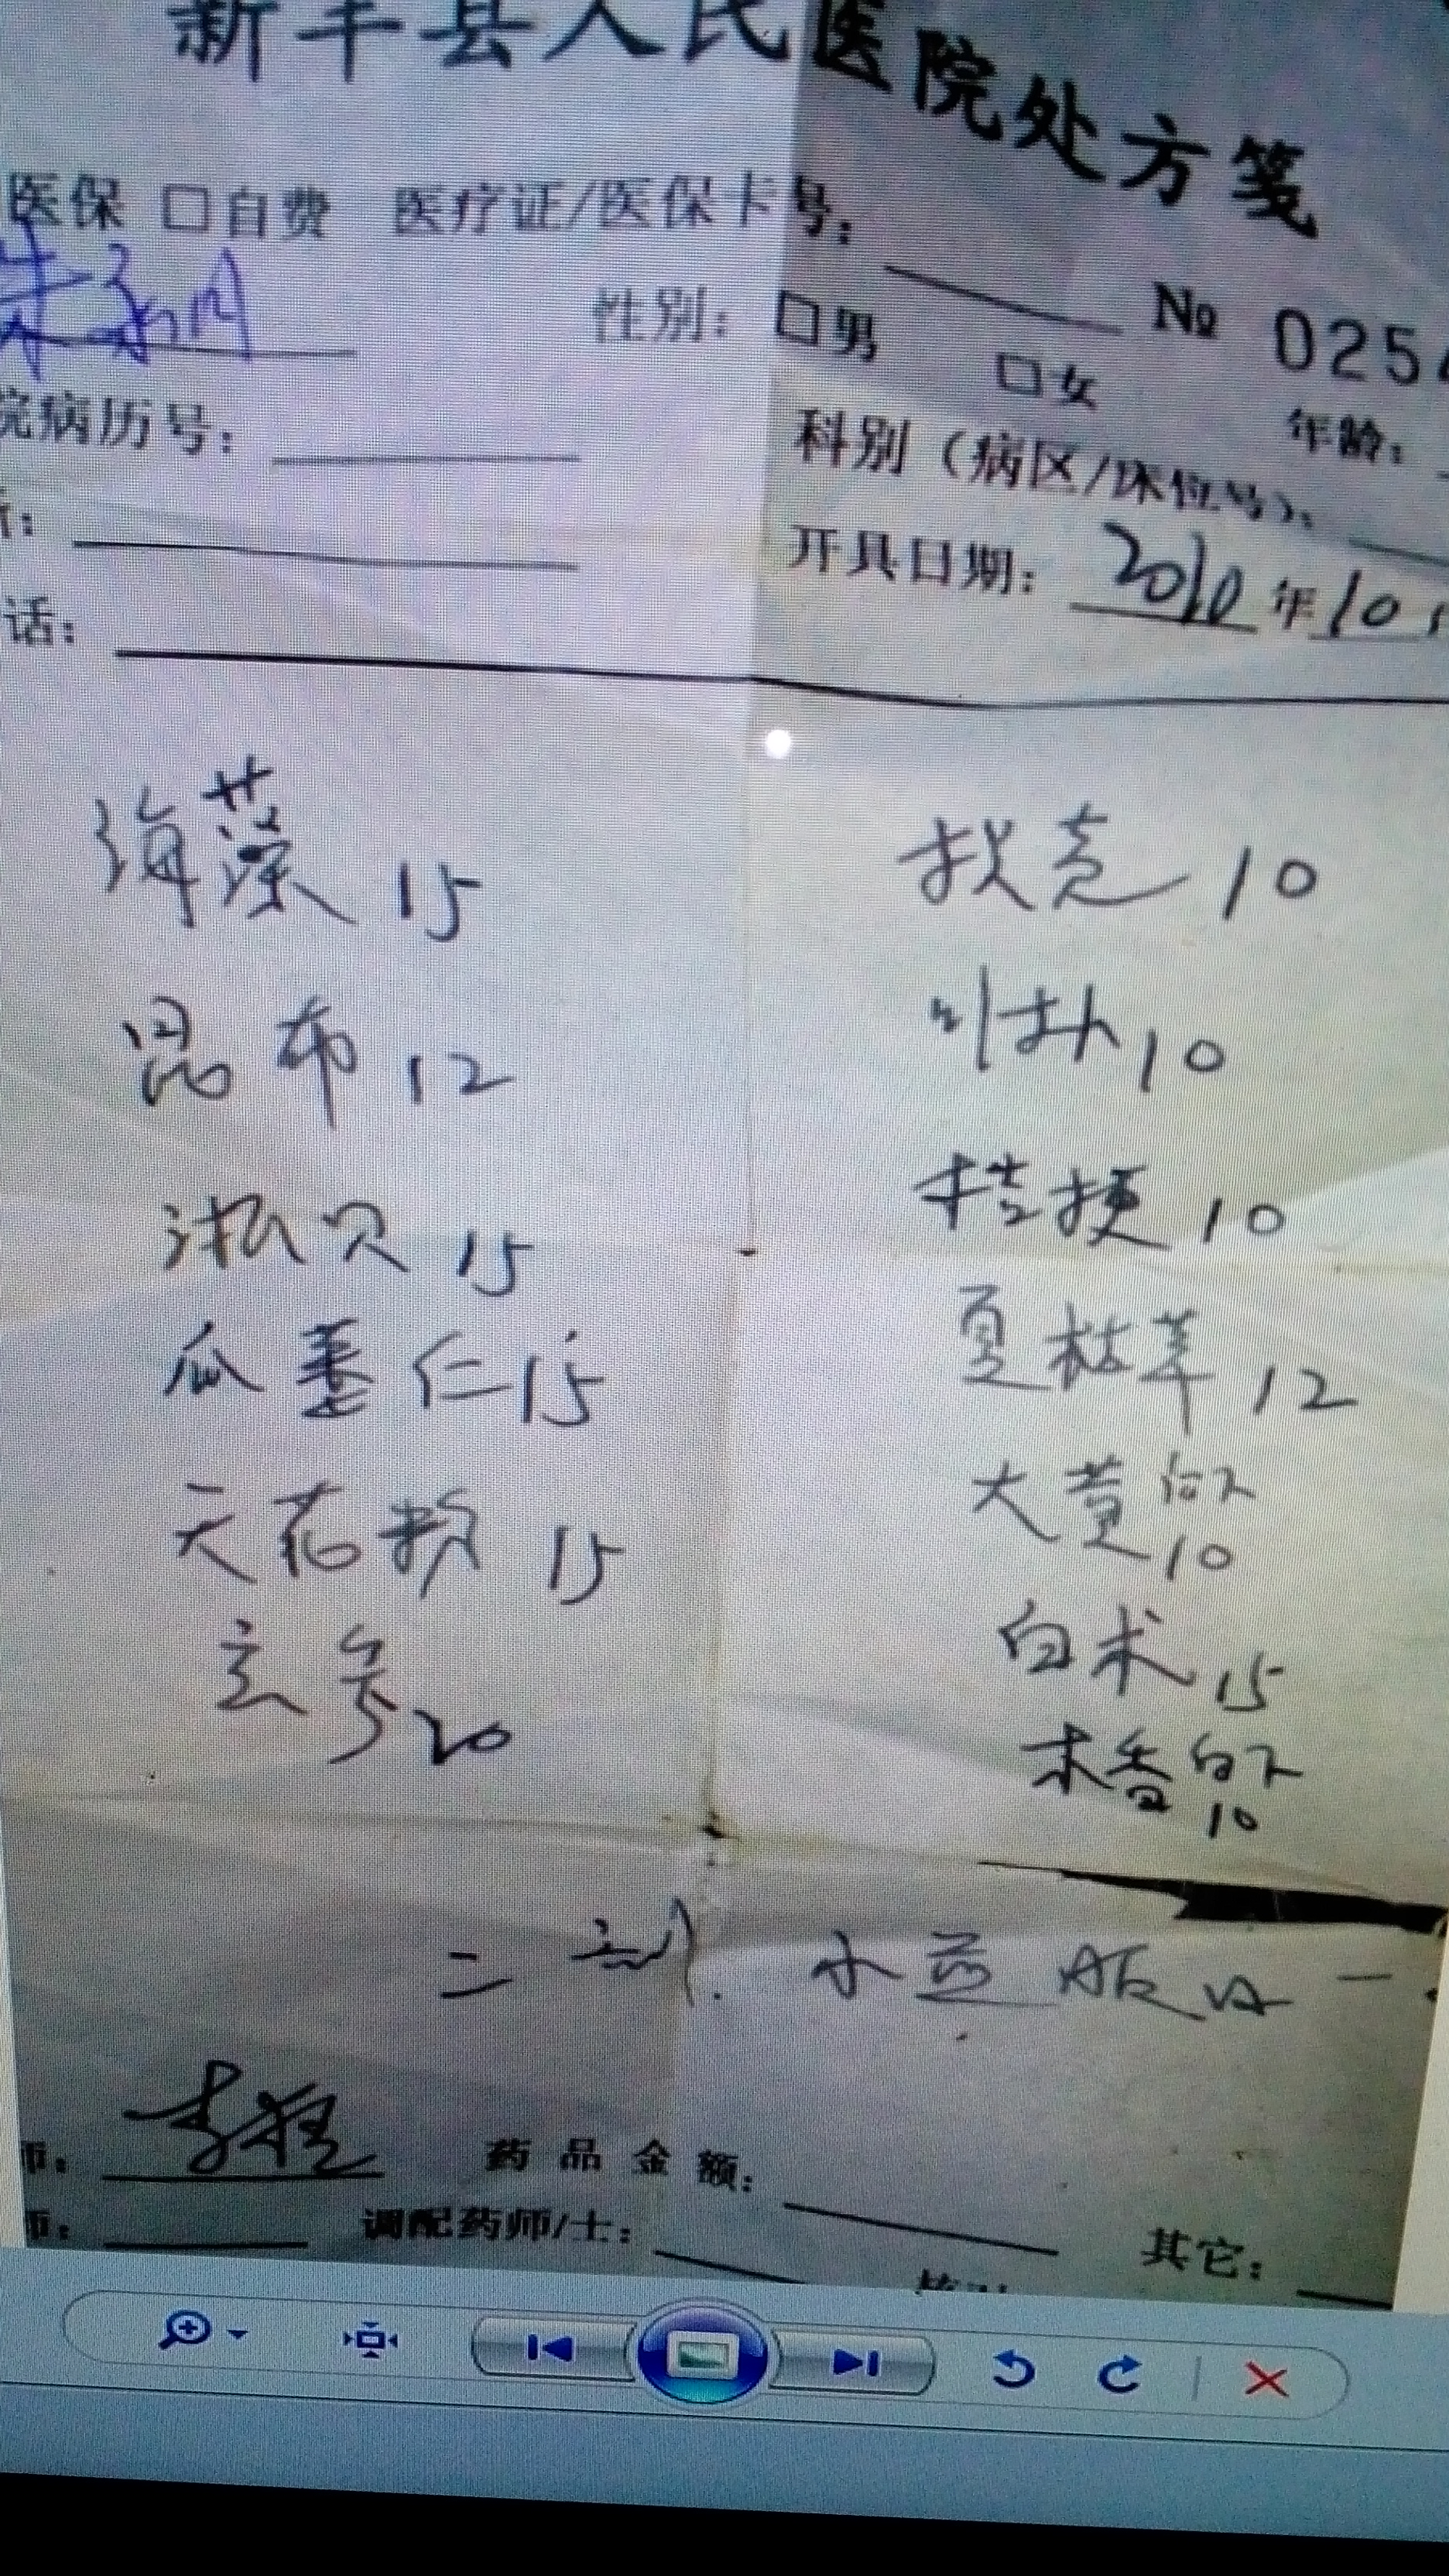 新丰县人民医院处方笺
医保 □自费 医疗证/医保卡号:
№ 025
性别: □男 □女 年龄:
院病历号:
科别(病区/床位号):
开具日期: 2010年10
话:
海藻 15
枳壳 10
昆布 12
川朴 10
浙贝 15
桔梗 10
瓜蒌仁 15
夏枯草 12
天花粉 15
大黄 后下 10
玄参 20
白术 15
木香 后下 10
二剂. 水
师:
药品金额:
师:
调配药师/士:
其它: